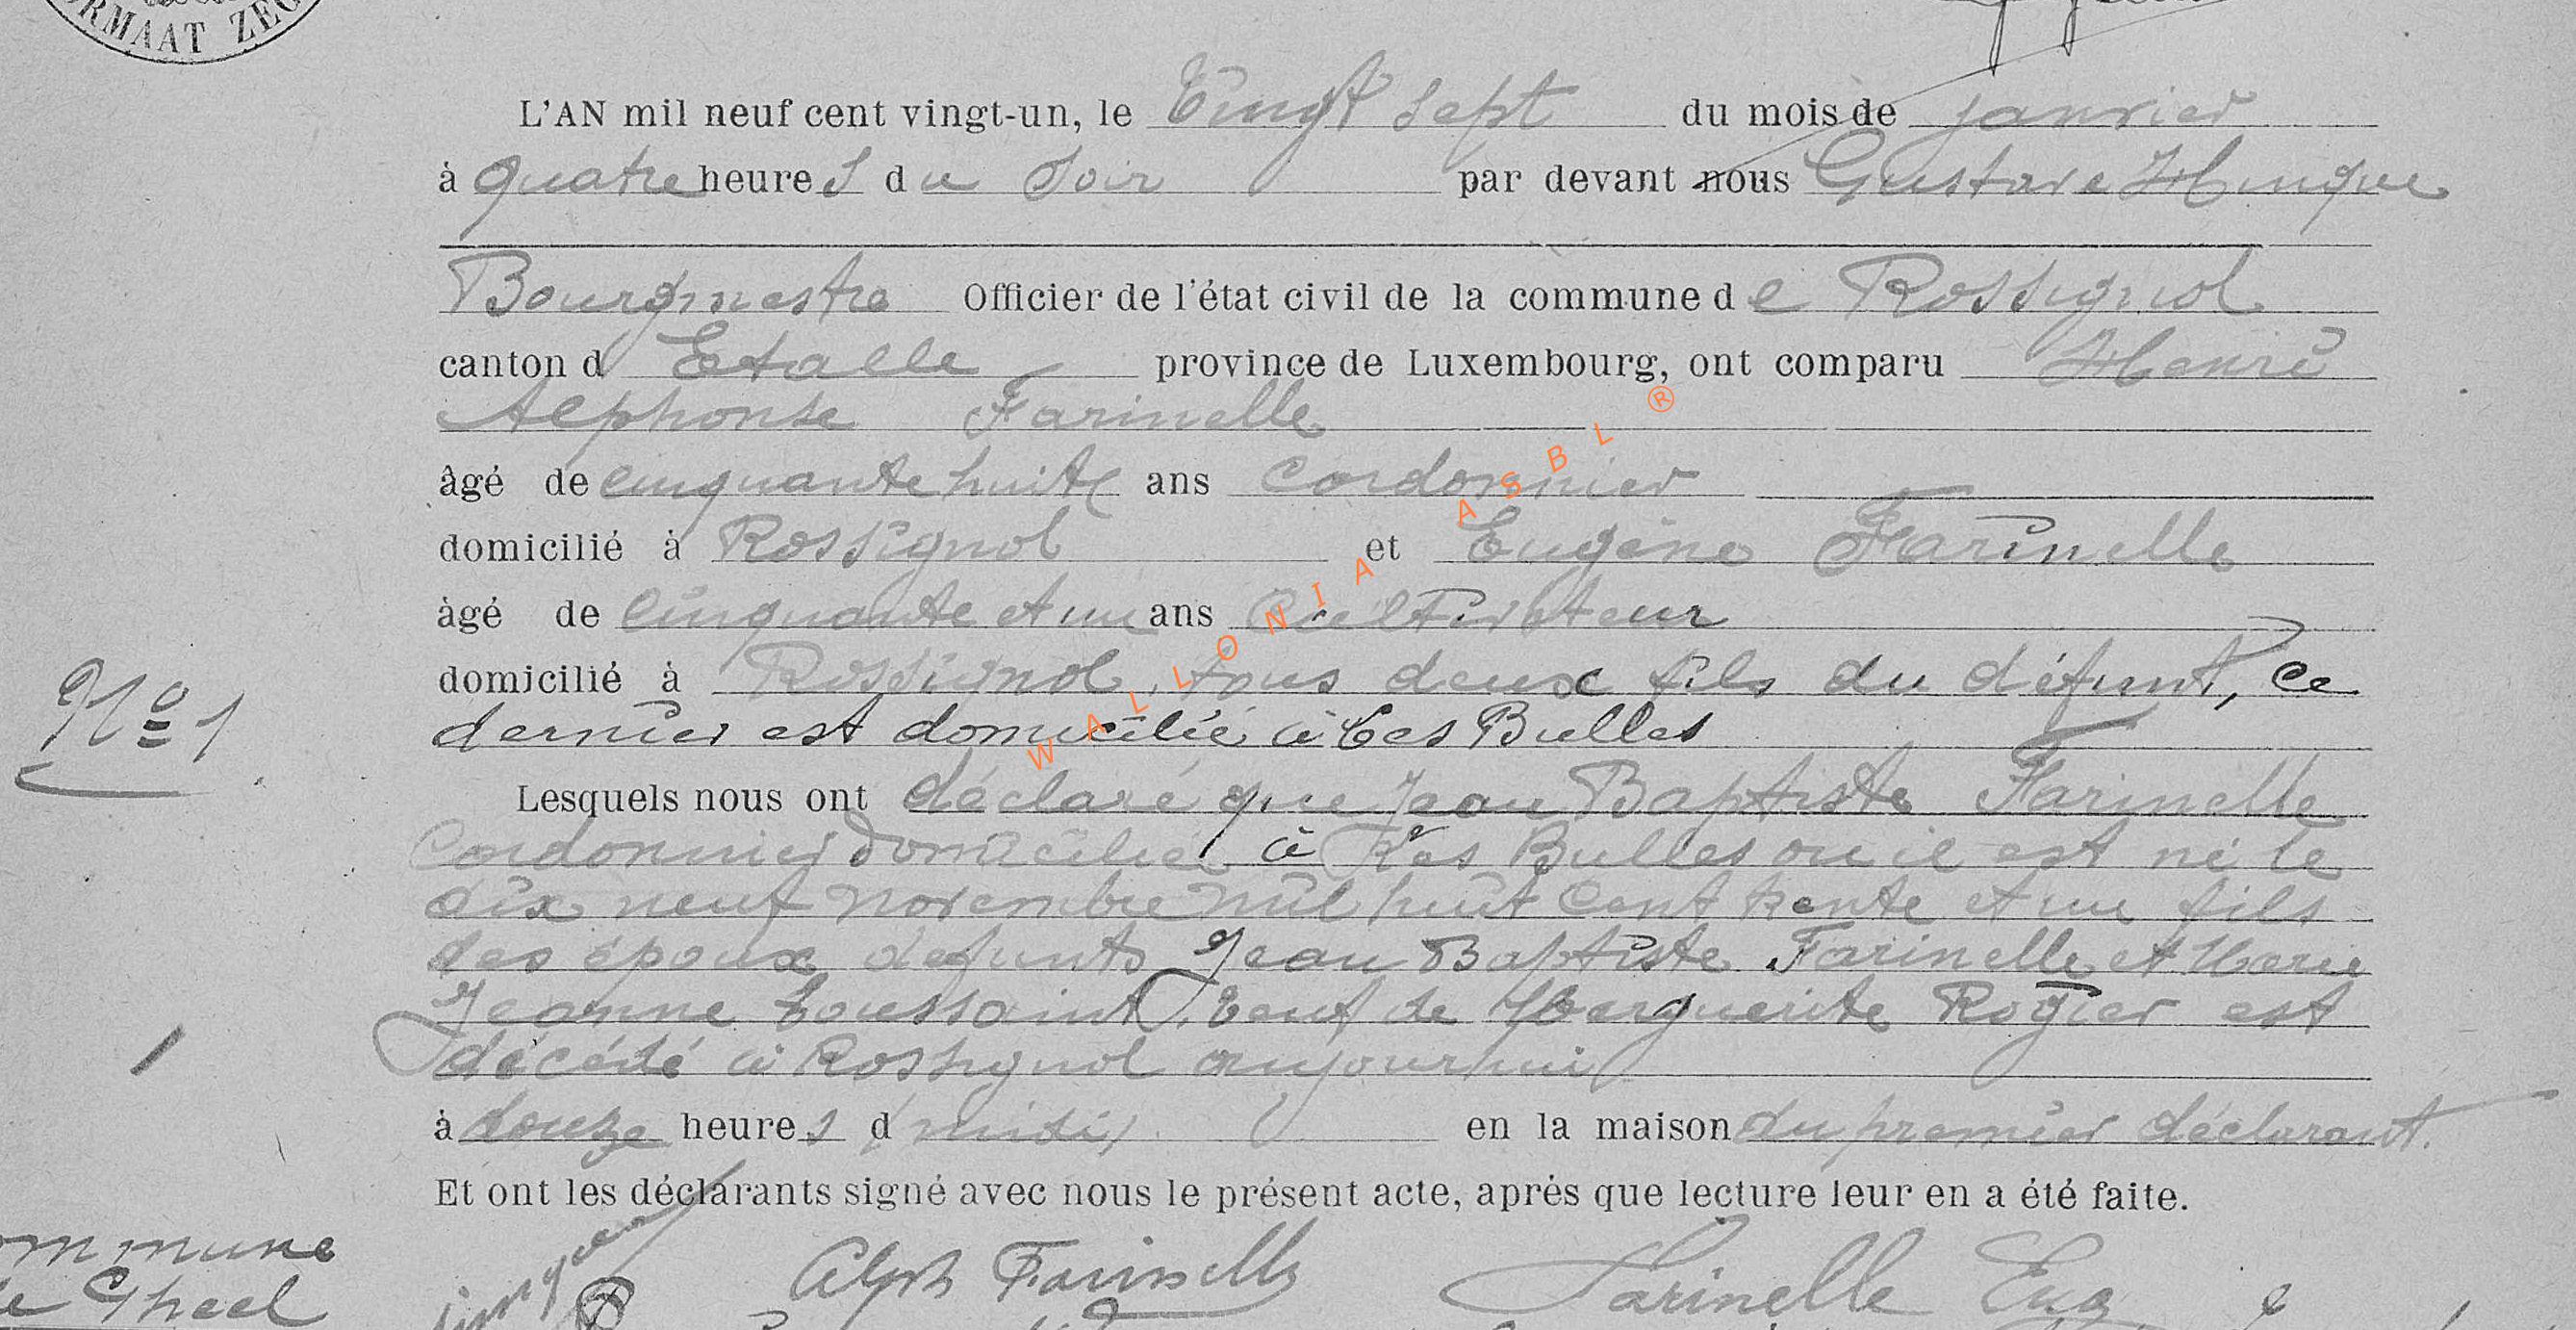 RMAAT ZEG
L'AN mil neuf cent vingt-un, le Vingt sept du mois de janvier
à quatre heures du soir par devant nous Gustave Hurique
Bourgmestre Officier de l'état civil de la commune de Rossignol
canton d' Etalle province de Luxembourg, ont comparu Henri
Alphonse Farinelle
âgé de cinquante huit ans Cordonnier
domicilié à Rossignol et Eugène Farinelle
âgé de cinquante et un ans Cultivateur
domicilié à Rossignol, tous deux fils du défunt, ce
dernier est domicilié à Les Bulles
N° 1
Lesquels nous ont déclaré que Jean Baptiste Farinelle
Cordonnier domicilié à Les Bulles ou il est né le
dix neuf novembre mil huit cent trente et un fils
des époux défunts Jean Baptiste Farinelle et Marie
Jeanne Toussaint, veuf de Marguerite Rogier est
décédé à Rossignol aujourhui
à douze heures d midi, en la maison du premier déclarant.
Et ont les déclarants signé avec nous le présent acte, après que lecture leur en a été faite.
Alph Farinelle Farinelle Eug
ommune
Gheel
WALLONIA ASBL ®